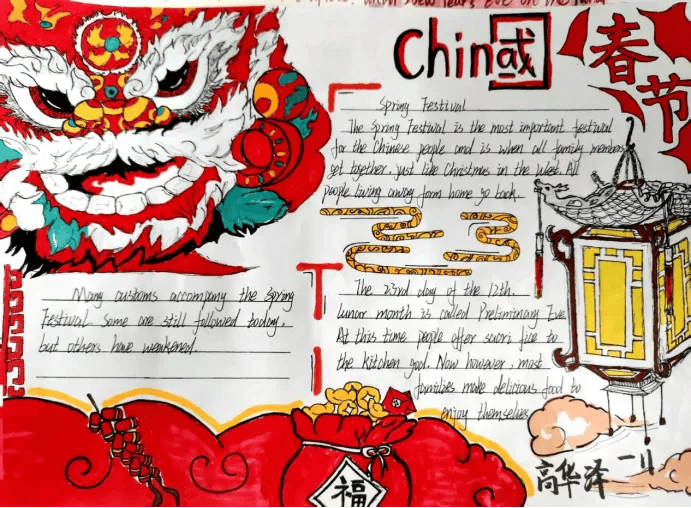 New Year's Eve on the
Chin或
春节
Spring Festival
The Spring Festival is the most important festival
for the Chinese people and is when all family members
get together, just like Christmas in the West. All
people living away form home go back
Many customs accompany the Spring
Festival. Some are still followed today,
but others have weakened.
The 23rd day of the 12th.
lunar month is called Preliminary Eve.
At this time people offer sacri fice to
the kitchen god. Now however, most
families make delicious food to
enjoy themselves
福
高华泽